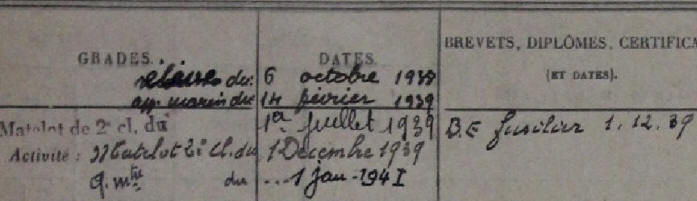 GRADES. DATES. BREVETS, DIPLÔMES, CERTIFICA
(ET DATES).
élève du 6 octobre 1938
app. marin du 14 février 1939
Matelot de 2e cl. du 1er juillet 1939 B.E fusilier 1.12.39
Activité : Matelot 2e cl. du 1 Décembre 1939
q. mtre du ... 1 jan. 1941